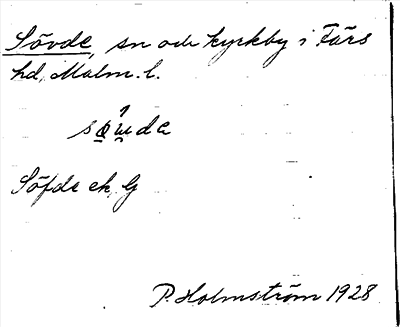 Sövde, sn och kyrkby i Färs
hd, Malm. l.
Söfde ek. G
P. Holmström 1928